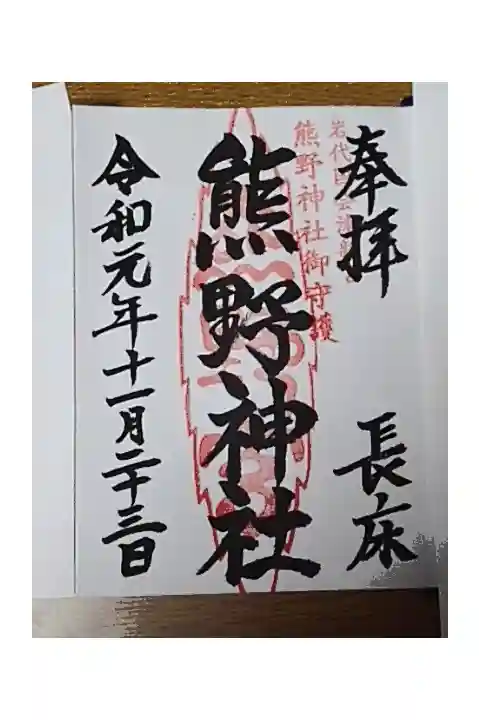 奉拝
長床
岩代国会津
熊野神社御守護
熊野神社
令和元年十一月二十三日